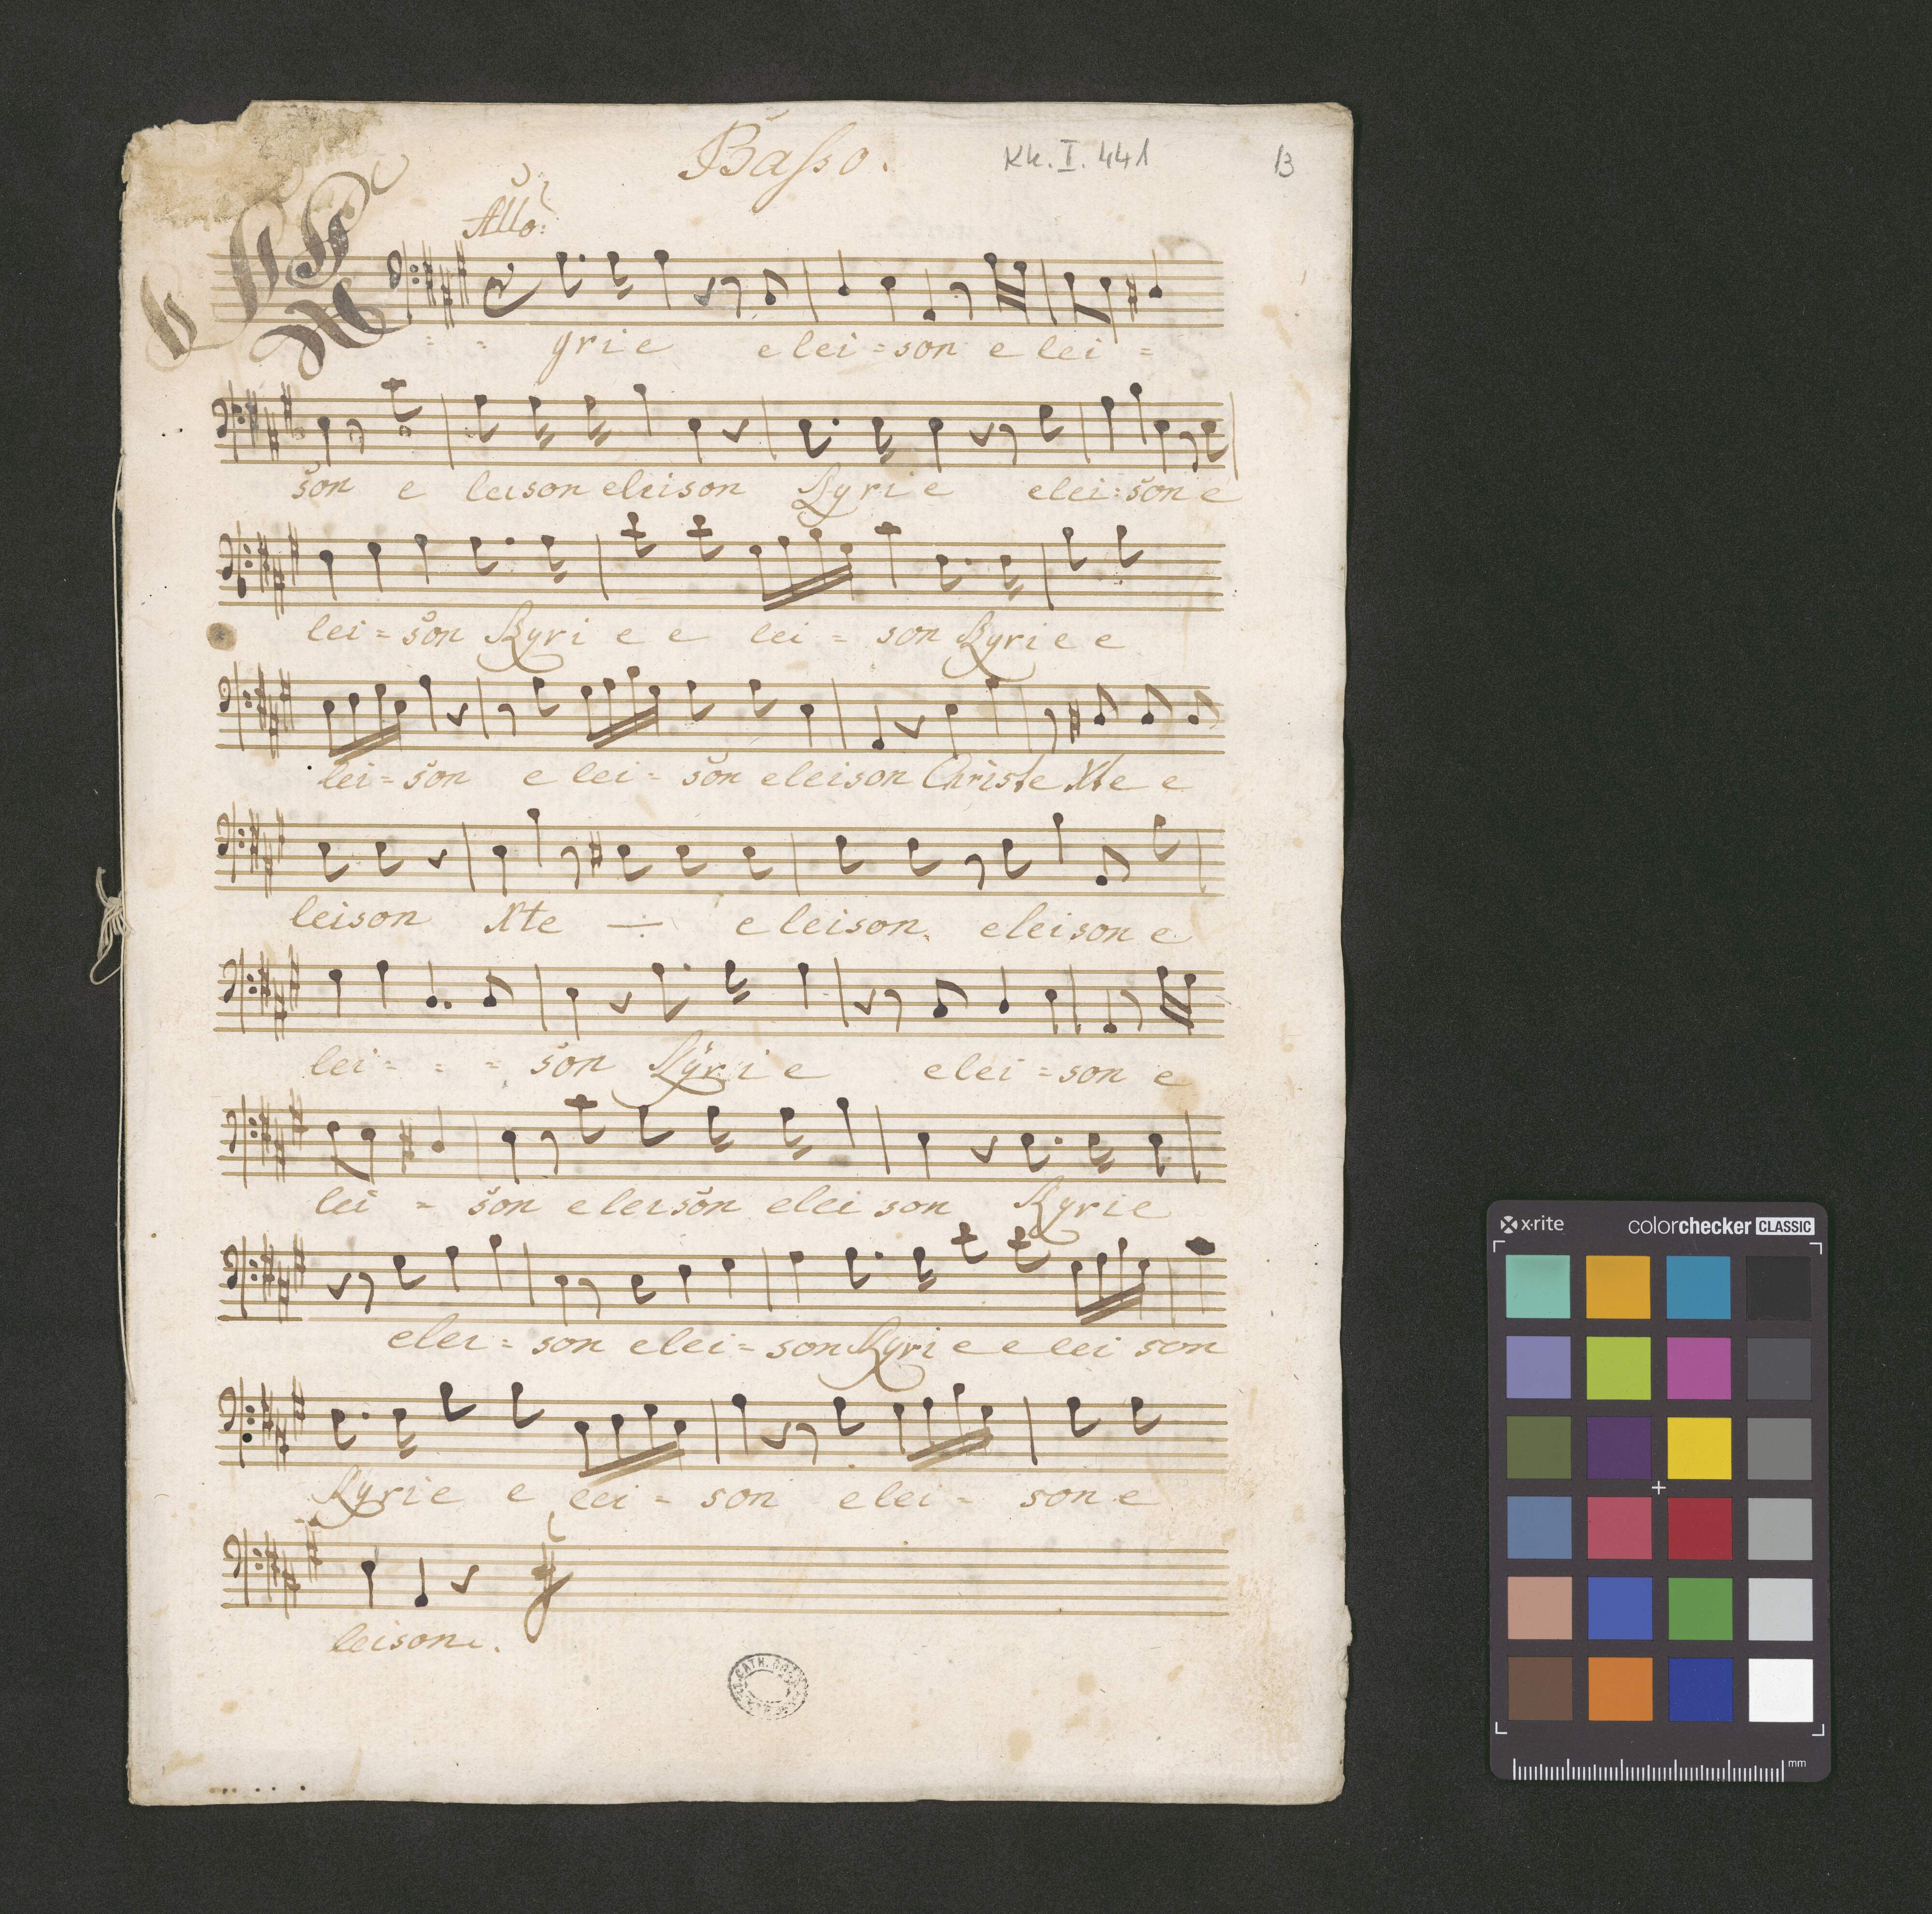 Basso.
Kk. I. 441
B
Allo:
K = = yrie elei = son e lei =
son e leison eleison Kyrie elei = son e
lei = son Kyri e e lei = son Kyrie e
lei = son e lei = son eleison Christe Xte e
leison Xte — eleison. eleison e
lei = = = son Kyrie elei = son e
lei = son eleison elei son Kyrie
elei = son elei = son Kyri e e lei son
Kyrie e lei = son elei = son e
leison.
x-rite
colorchecker CLASSIC
mm